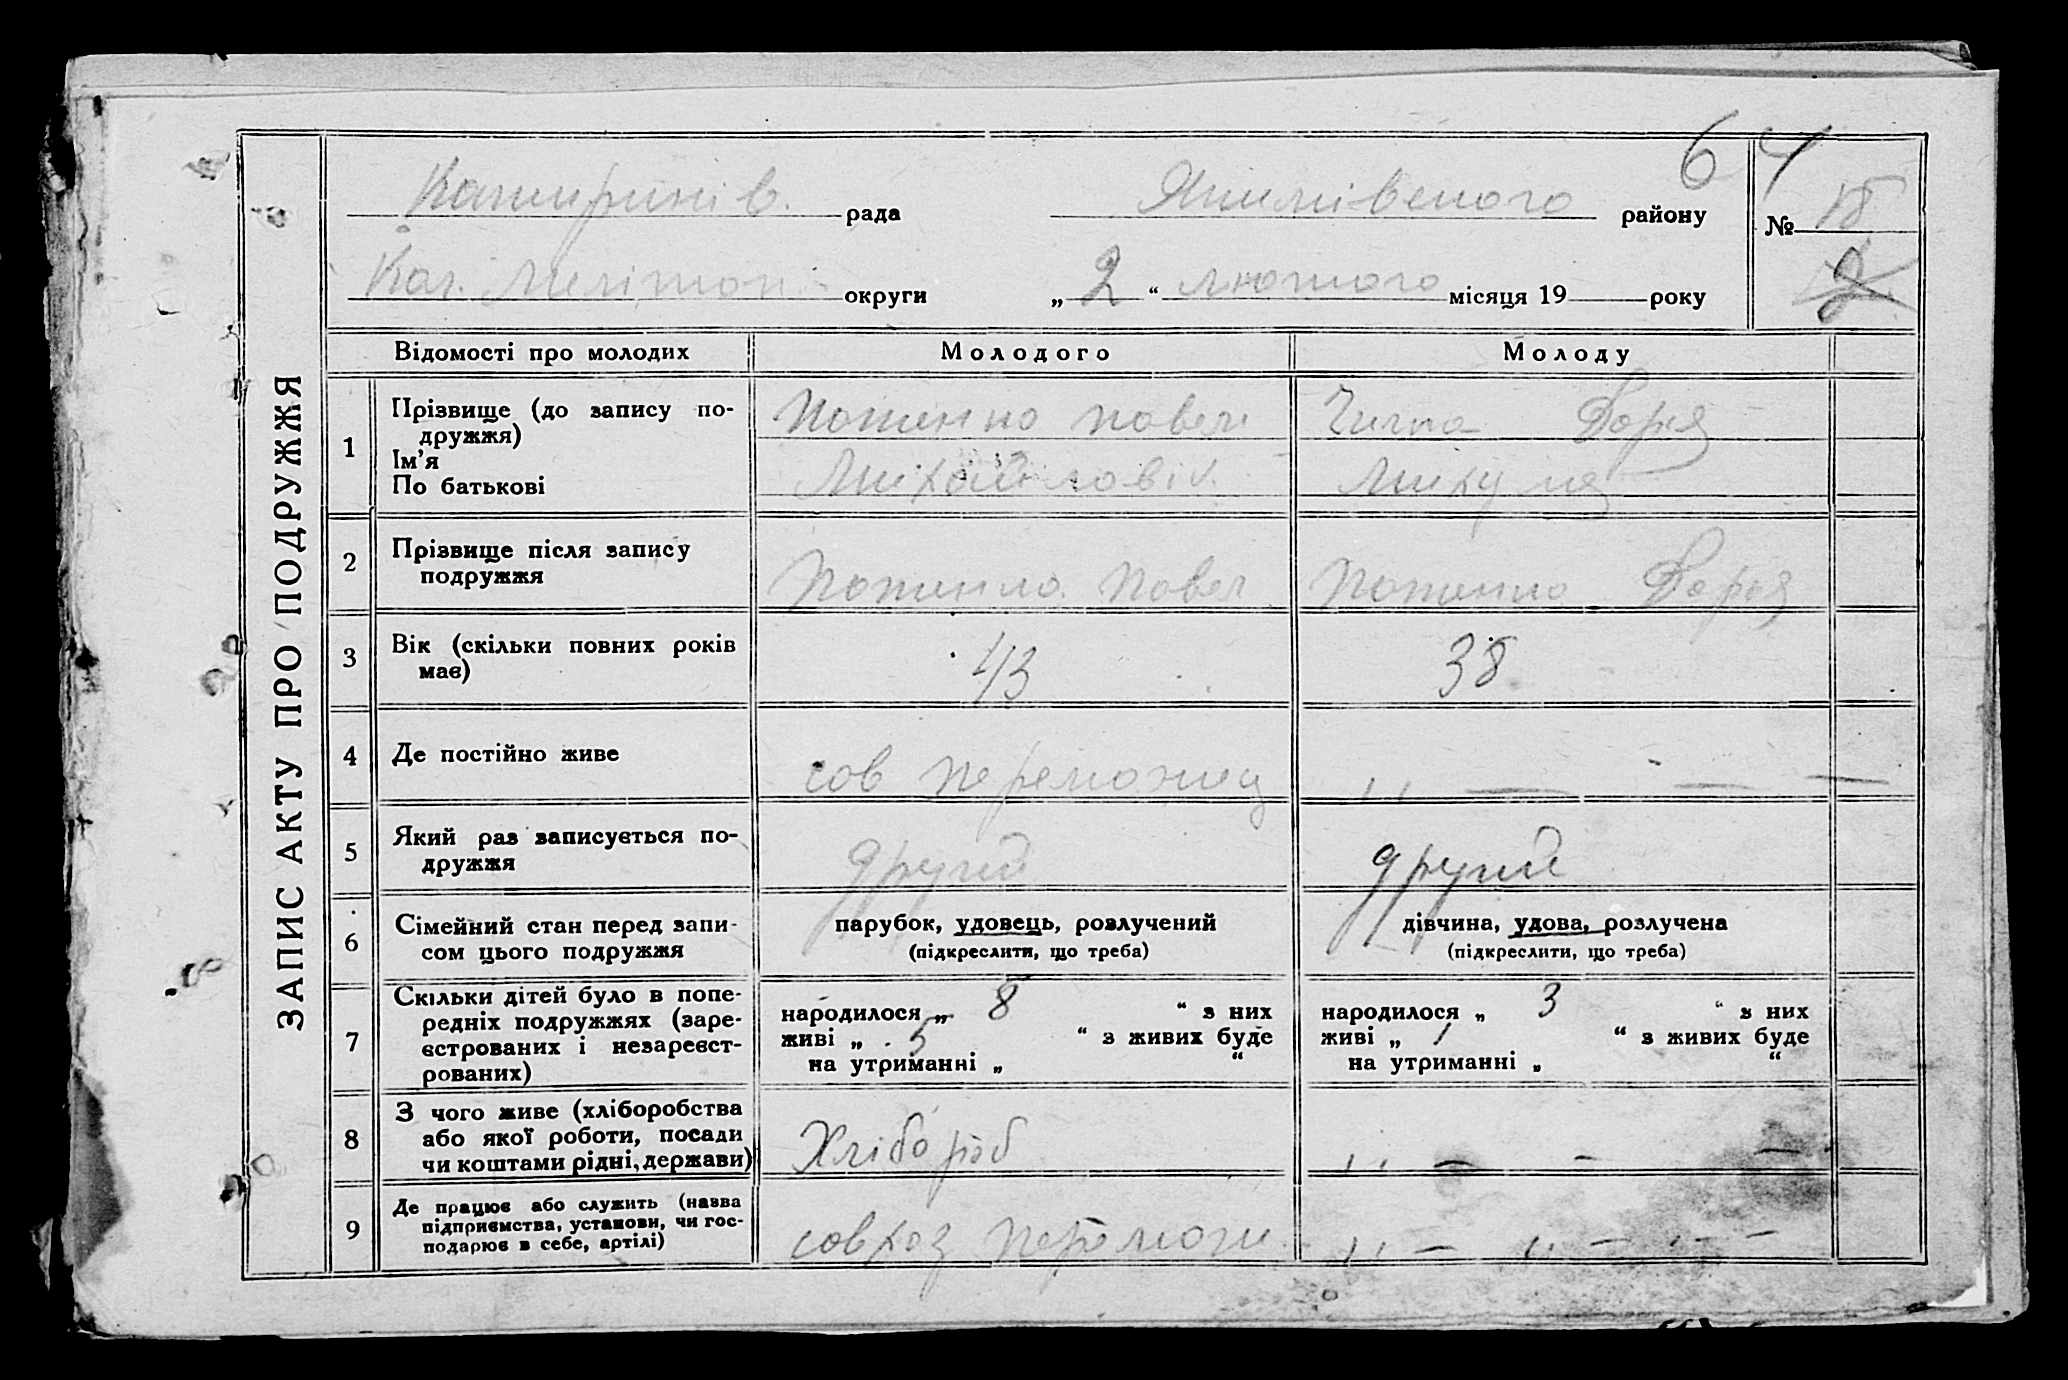 64
Катиринів. рада Якимівського району № 18
Кол. Мелітоп. округи „ 2 “ лютого місяця 19 року
ЗАПИС АКТУ ПРО ПОДРУЖЖЯ
Відомості про молодих Молодого Молоду
1 Прізвище (до запису по-
дружжя)
Ім’я
По батькові
Павел
Михайловіч.
Дарья
2 Прізвище після запису
подружжя
Павел
Дарья
3 Вік (скільки повних років
має)
43
38
4 Де постійно живе
сов Переможец
„ — — —
5 Який раз записується по-
дружжя
другий
другий
6 Сімейний стан перед запи-
сом цього подружжя
парубок, удовець, розлучений
(підкреслити, що треба)
дівчина, удова, розлучена
(підкреслити, що треба)
7 Скільки дітей було в попе-
редніх подружжях (заре-
єстрованих і незареєст-
рованих)
народилося „ 8 “ з них
живі „ 5 “ з живих буде
на утриманні „ “
народилося „ 3 “ з них
живі „ 1 “ з живих буде
на утриманні „ “
8 З чого живе (хліборобства
або якої роботи, посади
чи коштами рідні, держави)
Хлібороб
„ — - —
9 Де працює або служить (назва
підприємства, установи, чи гос-
подарює в себе, артілі)
совхоз Перемож
„ — „ — „ —